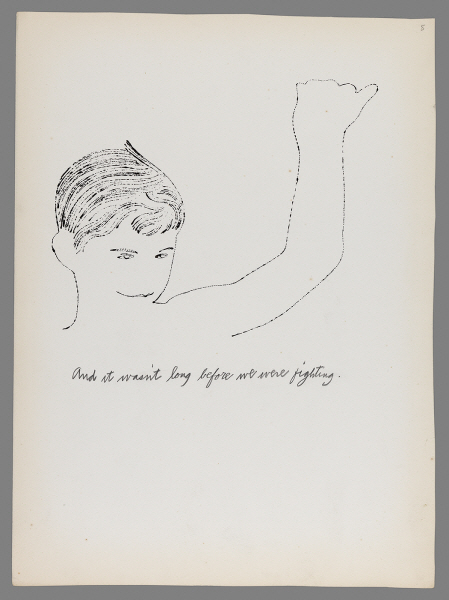 5
And it wasn't long before we were fighting.